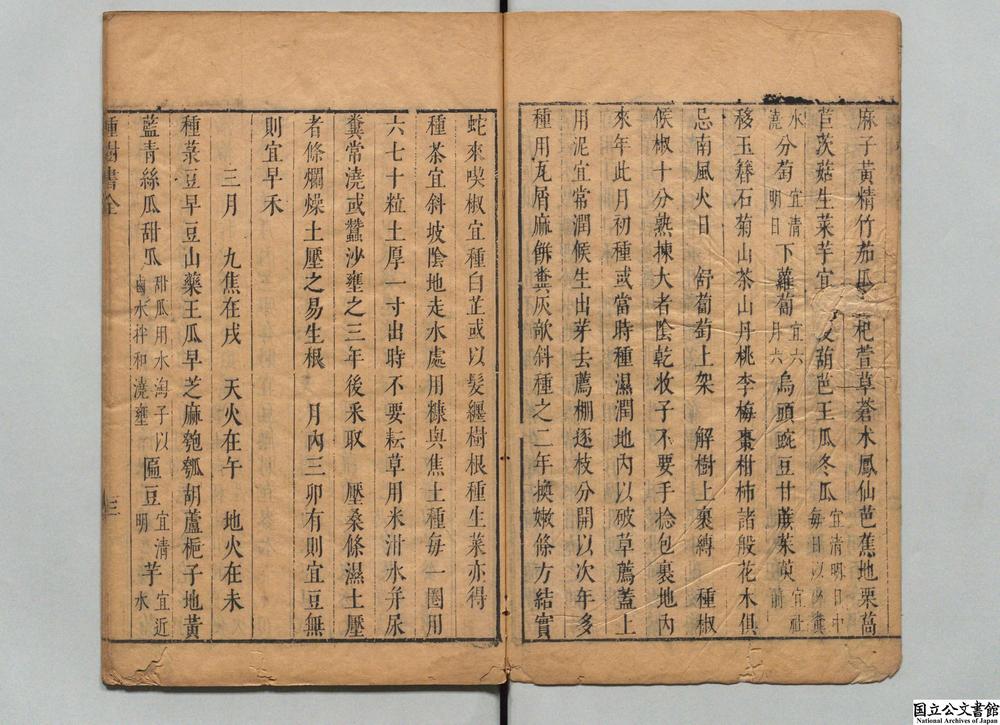 麻子黃精竹茄瓜 杞萱草蒼朮鳳仙芭蕉地栗萵
苣茨菇生菜芋宜 葫芭王瓜冬瓜宜清明日中每日以少糞
水澆分萄宜清明日下蘿蔔宜六月六烏頭豌豆甘蔗茱萸宜社前
移玉簪石菊山茶山丹桃李梅棗柑柿諸般花木俱
忌南風火日 舒萄萄上架 解樹上裹縛 種椒
候椒十分熟揀大者陰乾收子不要手捻包裹地內
來年此月初種或當時種濕潤地內以破草薦蓋上
用泥宜常潤候生出芽去薦棚逐枝分開以次年多
種用瓦屑麻餅糞灰欹斜種之二年換嫩條方結實
蛇來喫椒宜種白芷或以髮纏樹根種生菜亦得
種茶宜斜坡陰地走水處用糠與焦土種每一圈用
六七十粒土厚一寸出時不要耘草用米泔水并尿
糞常澆或蠶沙壅之三年後釆取 壓桑條濕土壓
者條爛燥土壓之易生根 月內三卯有則宜豆無
則宜早禾
三月 九焦在戌 天火在午 地火在未
種菉豆早豆山藥王瓜早芝麻匏瓠胡蘆梔子地黃
藍青絲瓜甜瓜甜瓜用水淘子以鹵水拌和澆壅區豆宜清明芋宜近水
種樹書全 三
国立公文書館
National Archives of Japan